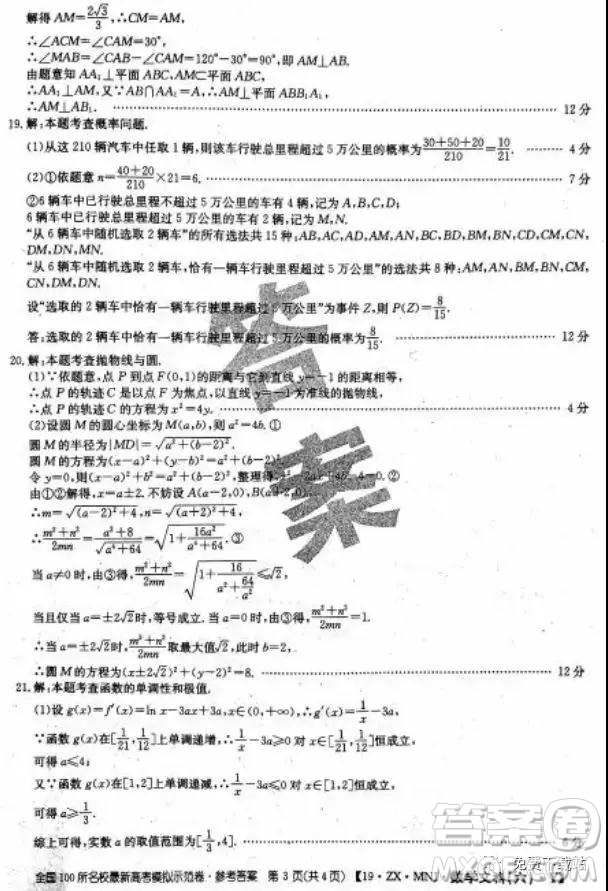 解得AM=2√3/3,∴CM=AM,
∴∠ACM=∠CAM=30°,
∴∠MAB=∠CAB-∠CAM=120°-30°=90°,即AM⊥AB.
由题意知AA₁⊥平面ABC,AM⊂平面ABC,
∴AA₁⊥AM,又∵AB∩AA₁=A,∴AM⊥平面ABB₁A₁,
∴AM⊥AB₁. 12分
19.解:本题考查概率问题.
(1)从这210辆汽车中任取1辆,则该车行驶总里程超过5万公里的概率为(30+50+20)/210=10/21. 4分
(2)①依题意n=(40+20)/210×21=6. 7分
②6辆车中已行驶总里程不超过5万公里的车有4辆,记为A,B,C,D;
6辆车中已行驶总里程超过5万公里的车有2辆,记为M,N.
“从6辆车中随机选取2辆车”的所有选法共15种:AB,AC,AD,AM,AN,BC,BD,BM,BN,CD,CM,CN,
DM,DN,MN.
“从6辆车中随机选取2辆车,恰有一辆车行驶里程超过5万公里”的选法共8种:AM,AN,BM,BN,CM,
CN,DM,DN.
设“选取的2辆车中恰有一辆车行驶里程超过5万公里”为事件Z,则P(Z)=8/15.
答:选取的2辆车中恰有一辆车行驶里程超过5万公里的概率为8/15. 12分
20.解:本题考查抛物线与圆.
(1)∵依题意,点P到点F(0,1)的距离与它到直线y=-1的距离相等,
∴点P的轨迹C是以点F为焦点,以直线y=-1为准线的抛物线,
∴点P的轨迹C的方程为x²=4y. 4分
(2)设圆M的圆心坐标为M(a,b),则a²=4b.①
圆M的半径为|MD|=√(a²+(b-2)²).
圆M的方程为(x-a)²+(y-b)²=a²+(b-2)².
令y=0,则(x-a)²+b²=a²+(b-2)²,整理得,x²-2ax+4b-4=0.②
由①②解得,x=a±2.不妨设A(a-2,0),B(a+2,0),
∴m=√((a-2)²+4),n=√((a+2)²+4),
∴(m²+n²)/2mn=(a²+8)/√(a⁴+64)=√(1+16a²/(a⁴+64)).③
当a≠0时,由③得,(m²+n²)/2mn=√(1+16/(a²+64/a²))≤√2,
当且仅当a=±2√2时,等号成立.当a=0时,由③得,(m²+n²)/2mn=1.
∴当a=±2√2时,(m²+n²)/2mn取最大值√2,此时b=2.
∴圆M的方程为(x±2√2)²+(y-2)²=8. 12分
21.解:本题考查函数的单调性和极值.
(1)设g(x)=f′(x)=ln x-3ax+3a,x∈(0,+∞),∴g′(x)=1/x-3a,
∵函数g(x)在[1/21,1/12]上单调递增,∴1/x-3a≥0对x∈[1/21,1/12]恒成立,
可得a≤4;
又∵函数g(x)在[1,2]上单调递减,∴1/x-3a≤0对x∈[1,2]恒成立,
可得a≥1/3.
综上可得,实数a的取值范围为[1/3,4]. 6分
全国100所名校最新高考模拟示范卷·参考答案 第3页(共4页) 【19·ZX·MNJ 数学文科(六)
答案
答案圈
免费下载站